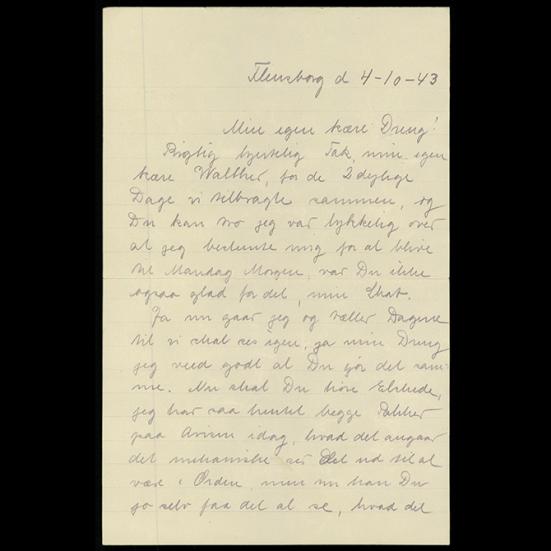 Flensborg d 4-10-43
Min egen kære Dreng!
Rigtig hjertelig Tak, min egen
kære Walther, for de 2 dejlige
Dage vi tilbragte sammen, og
Du kan tro jeg var lykkelig over
at jeg bestemte mig for at blive
til Mandag Morgen, var Du ikke
ogsaa glad for det, min Skat.
Ja nu gaar jeg og tæller Dagene
til vi skal ses igen, ja min Dreng
jeg veed godt at Du gør det sam-
me. Nu skal Du høre Elskede,
jeg har saa hentet begge
paa idag, hvad det angaar
det mekaniske ser det ud til at
være i Orden, men nu kan Du
jo selv faa det at se, hvad det